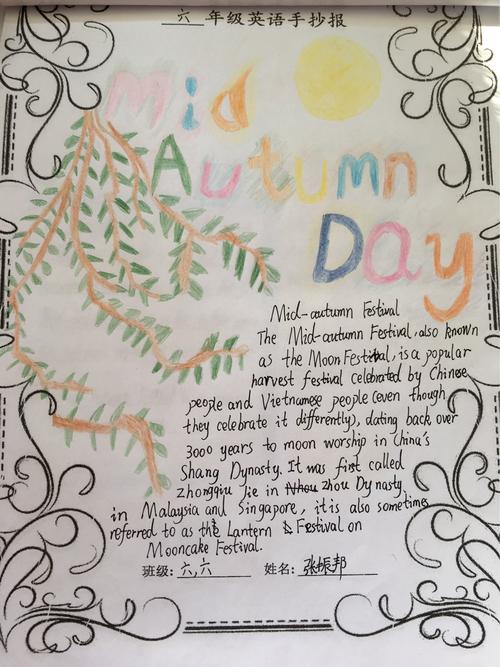 六 年级英语手抄报
Mid
Autumn
Day
Mid-autumn Festival
The Mid-autumn Festival, also known
as the Moon Festival, is a popular
harvest festival celebrated by Chinese
people and Vietnamese people (even though
they celebrate it differently), dating back over
3000 years to moon worship in China's
Shang Dynasty. It was first called
Zhongqiu Jie in Zhou Dynasty
in Malaysia and Singapore, it is also sometimes
referred to as the Lantern Festival on
Mooncake Festival.
班级: 六,六 姓名: 张振邦